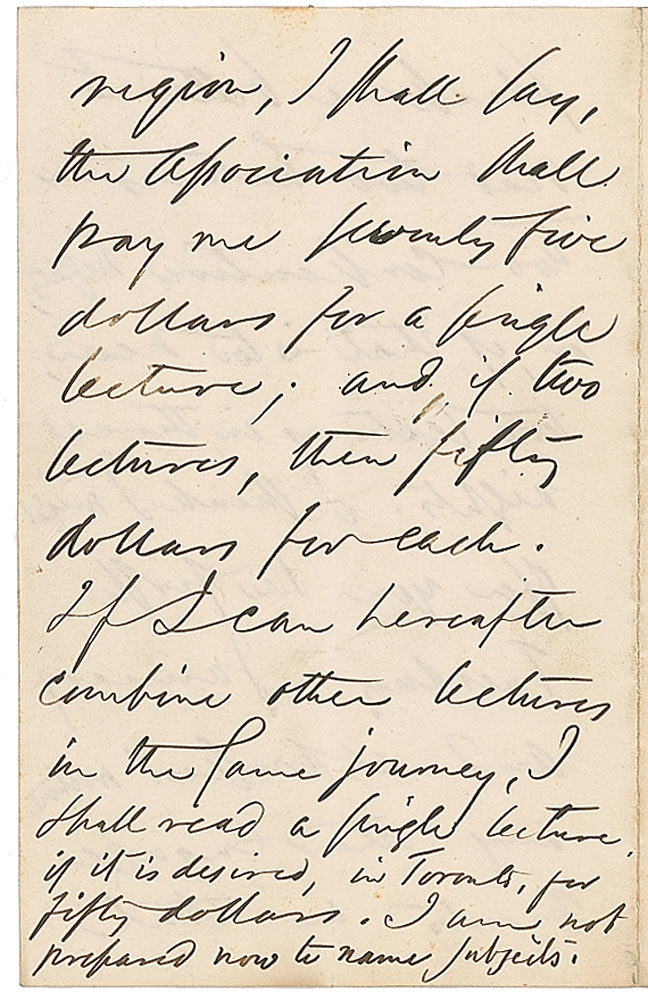 region, I shall say,
the Association shall
pay me seventy five
dollars for a single
lecture; and, if two
lectures, then fifty
dollars for each.
If I can hereafter
combine other lectures
in the same journey, I
shall read a single lecture,
if it is desired, in Toronto, for
fifty dollars. I am not
prepared now to name subjects.